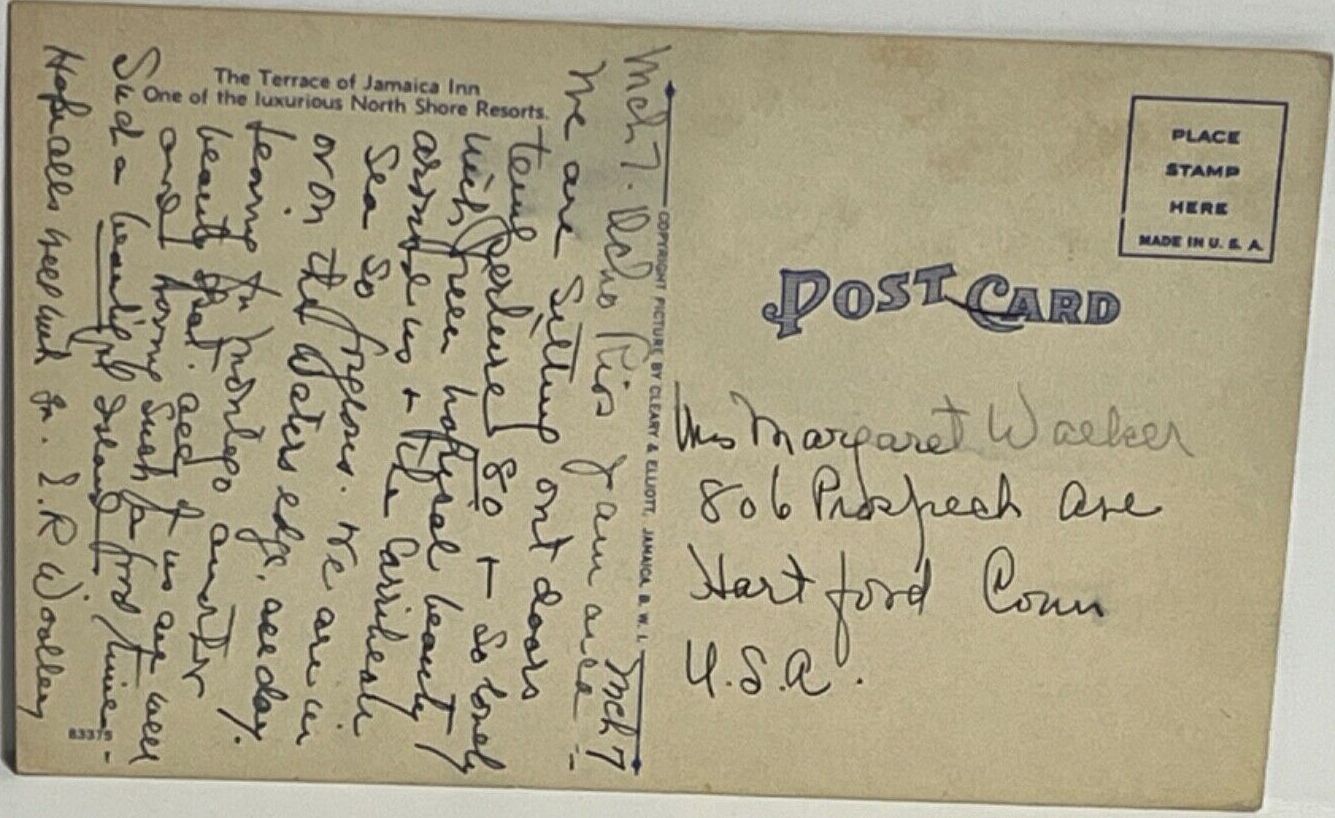 The Terrace of Jamaica Inn
One of the luxurious North Shore Resorts.
Mch 7.
Mch 7
We are sitting out doors
temperture 80 + so lovely
with green beauty
around us + the Carribean
Sea so We are in
or on the waters edge, all day.
leaving for Montego
beauty spot. all of us are well
and having such a good time -
Such a beautiful Island
Hope all's well with J.R.
83375
COPYRIGHT PICTURE BY CLEARY & ELLIOTT, JAMAICA, B. W. I.
PLACE
STAMP
HERE
MADE IN U. S. A.
POST CARD
Mrs Margaret Walker
806 Prospect Ave
Hartford Conn
U.S.A.